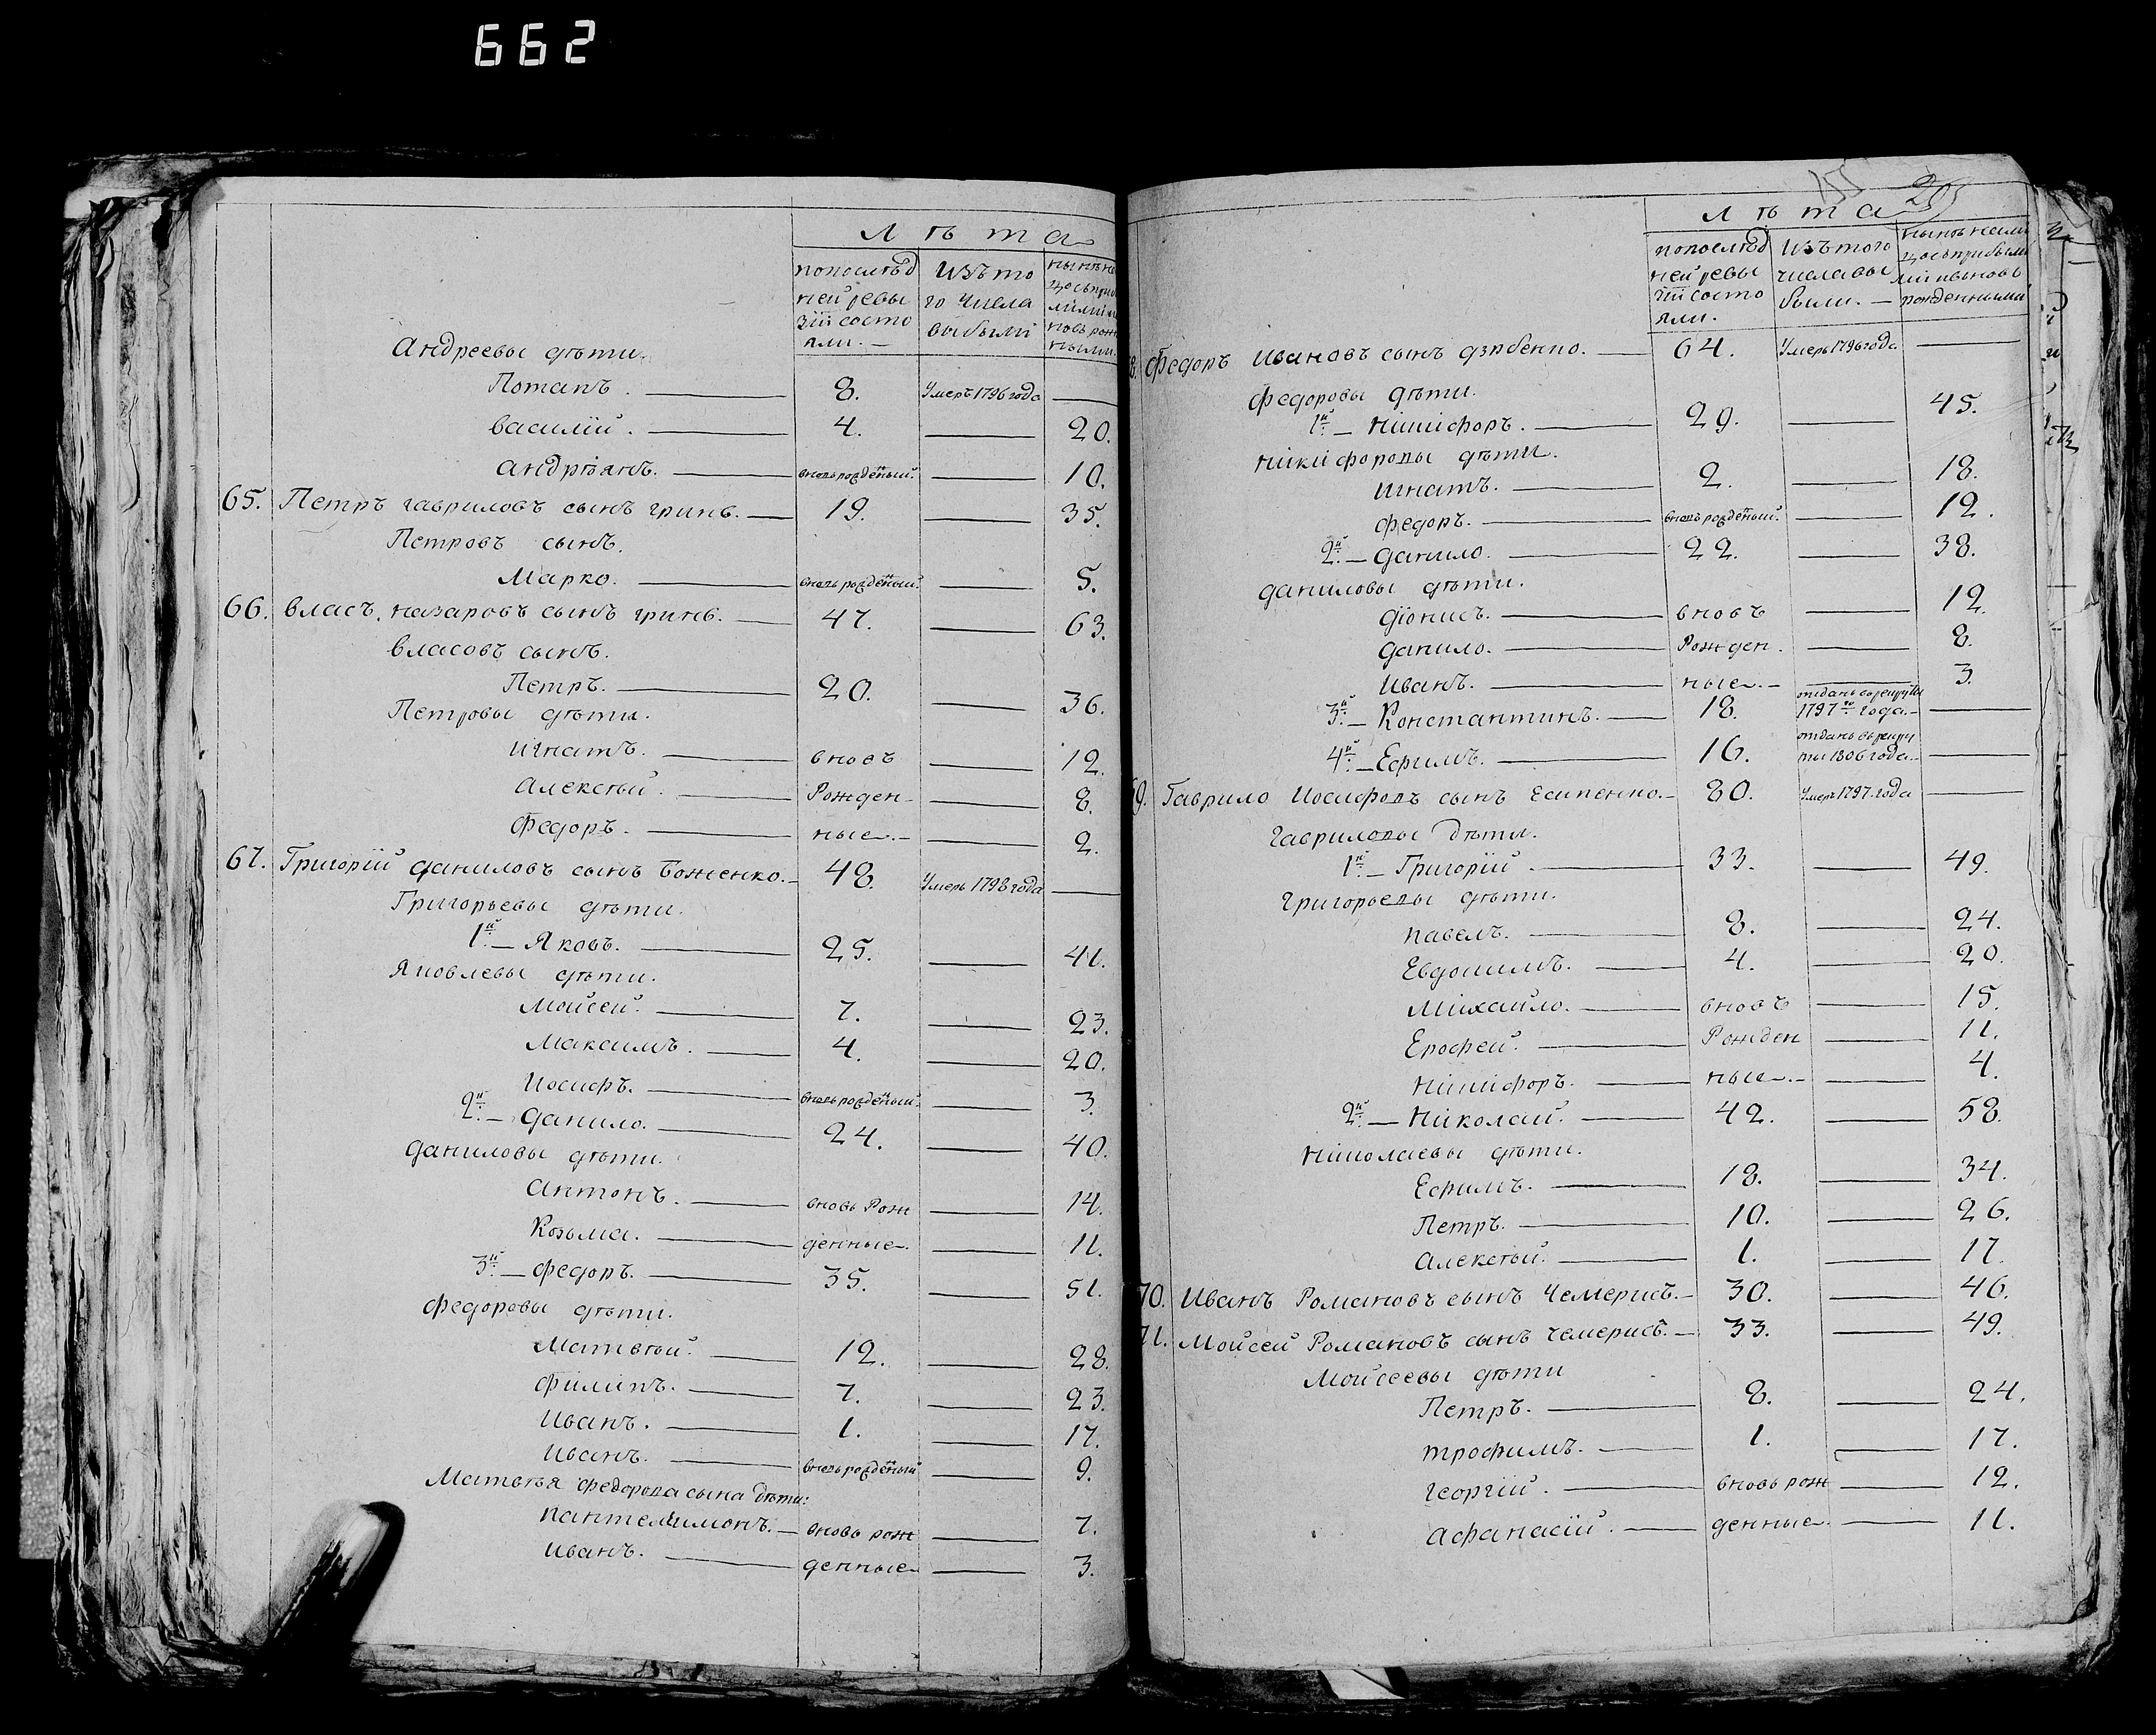 662
Лѣта
попослѣд ней ревизіи состояли. —
изъ того числа выбыли
Андреевы дѣти.
Потапъ. 8. Умеръ 1796 года —
Василій. 4. — 20.
Андрѣянъ. вновь рожденный. — 10.
65. Петръ гавриловъ сынъ гринв. 19. — 35.
Петровъ сынъ.
Марко. вновь рожденный. — 5.
66. власъ назаровъ сынъ гринв. 47. — 63.
власовъ сынъ.
Петръ. 20. — 36.
Петровы дѣти.
Игнатъ. вновь — 12.
Алексѣй. Рожден — 8.
Федоръ. ные. — 2.
67. Григорій даниловъ сынъ Боженко. 48. Умеръ 1798 года —
Григорьевы дѣти.
1й — Яковъ. 25. — 41.
Яковлевы дѣти.
Мойсей. 7. — 23.
Максимъ. 4. — 20.
Иосифъ. вновь рожденный. — 3.
2й — Данило. 24. — 40.
даниловы дѣти.
Антонъ. вновь Рож — 14.
Козьма. денные. — 11.
3й — федоръ. 35. — 51.
федоровы дѣти.
Матвѣй. 12. — 28.
филипъ. 7. — 23.
Иванъ. 1. — 17.
Иванъ. вновь рожденный — 9.
Матвѣя федорова сына дѣти:
пантелимонъ. вновь рож — 7.
Иванъ. денные — 3.
155 205
Лѣта
попослѣд ней ревизіи состояли.
Изътого числавы были. —
нынѣ налицо съприбылми ивновь рожденными
8. Федоръ Ивановъ сынъ дзюбенко. 64. Умеръ 1796 года —
федоровы дѣти.
1й — Никифоръ. 29. — 45.
Никифоровы дѣти.
Игнатъ. 2. — 18.
федоръ. вновь рожденный. — 12.
2й — данило. 22. — 38.
даниловы дѣти.
діонисъ. вновъ — 12.
данило. Рожден. — 8.
Иванъ. ные. — 3.
3й — Константинъ. 18. отданъ врекруты 1797го года. —
4й — Ефимъ. 16. отданъ врекруты 1806 года. —
9. Гаврило Иосифовъ сынъ Есипенко. — 80. Умеръ 1797. года —
гавриловы дѣти.
1й — Григорій. 33. — 49.
Григорьевы дѣти.
павелъ. 8. — 24.
Евдокимъ. 4. — 20.
Михайло. вновъ — 15.
Ерофей. Рожден — 11.
Никифоръ. ные. — 4.
2й — Николай. 42. — 58.
Николаевы дѣти.
Ефимъ. 18. — 34.
Петръ. 10. — 26.
Алексѣй. 1. — 17.
70. Иванъ Романовъ сынъ Чемерисъ. — 30. — 46.
71. Мойсей Романовъ сынъ чемерисъ. — 33. — 49.
Мойсеевы дѣти
Петръ. 8. — 24.
трофимъ. 1. — 17.
георгій. вновь рож — 12.
афанасій. денные. — 11.